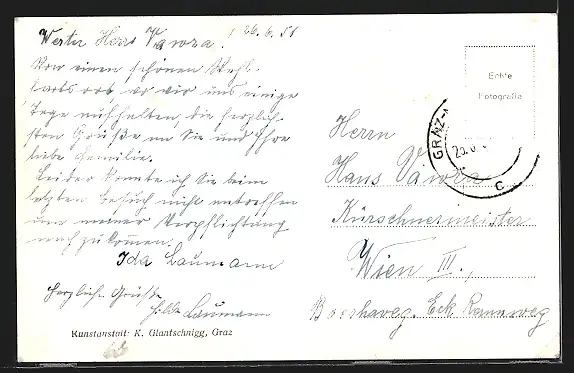 Werter Herr Vawra! 26.6.51
Von einem schönen
wo wir uns einige
Tage aufhalten, die herzlich-
sten Grüße an Sie und Ihre
liebe Familie.
Leider konnte ich Sie beim
letzten Besuch nicht antreffen
um meiner Verpflichtung
nachzukommen.
Ida Baumann
Herzliche Grüße
Hilde Baumann
Kunstanstalt: K. Glantschnigg, Graz
Echte
Fotografie
GRAZ
C
Herrn
Hans Vawra
Kürschnermeister
Wien III.,
Eck Rennweg